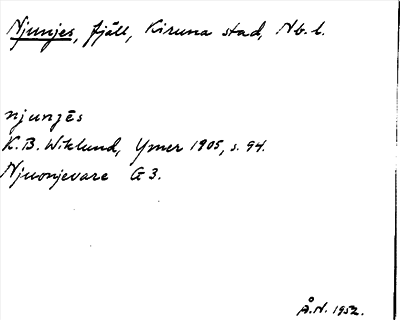 Njunjes, fjäll, Kiruna stad, Nb. l.
njunjēs
K.B. Wiklund, Ymer 1905, s. 94.
Njuonjevare G 3.
Å.N. 1952.